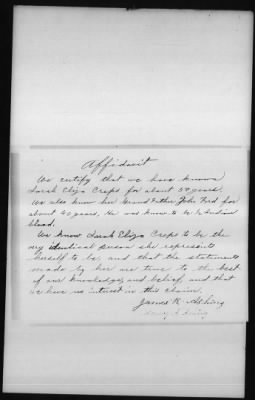 Affidavit
We certify that we have known
Sarah Eliza Creps for about 50 years.
We also knew her Grand Father John Ford for
about 40 years. He was known to be Indian
blood.
We know Sarah Eliza Creps to be the
very identical person she represents
herself to be, and that the statements
made by her are true to the best
of our knowledge, and belief, and that
we have no interest in this claim.
James R.